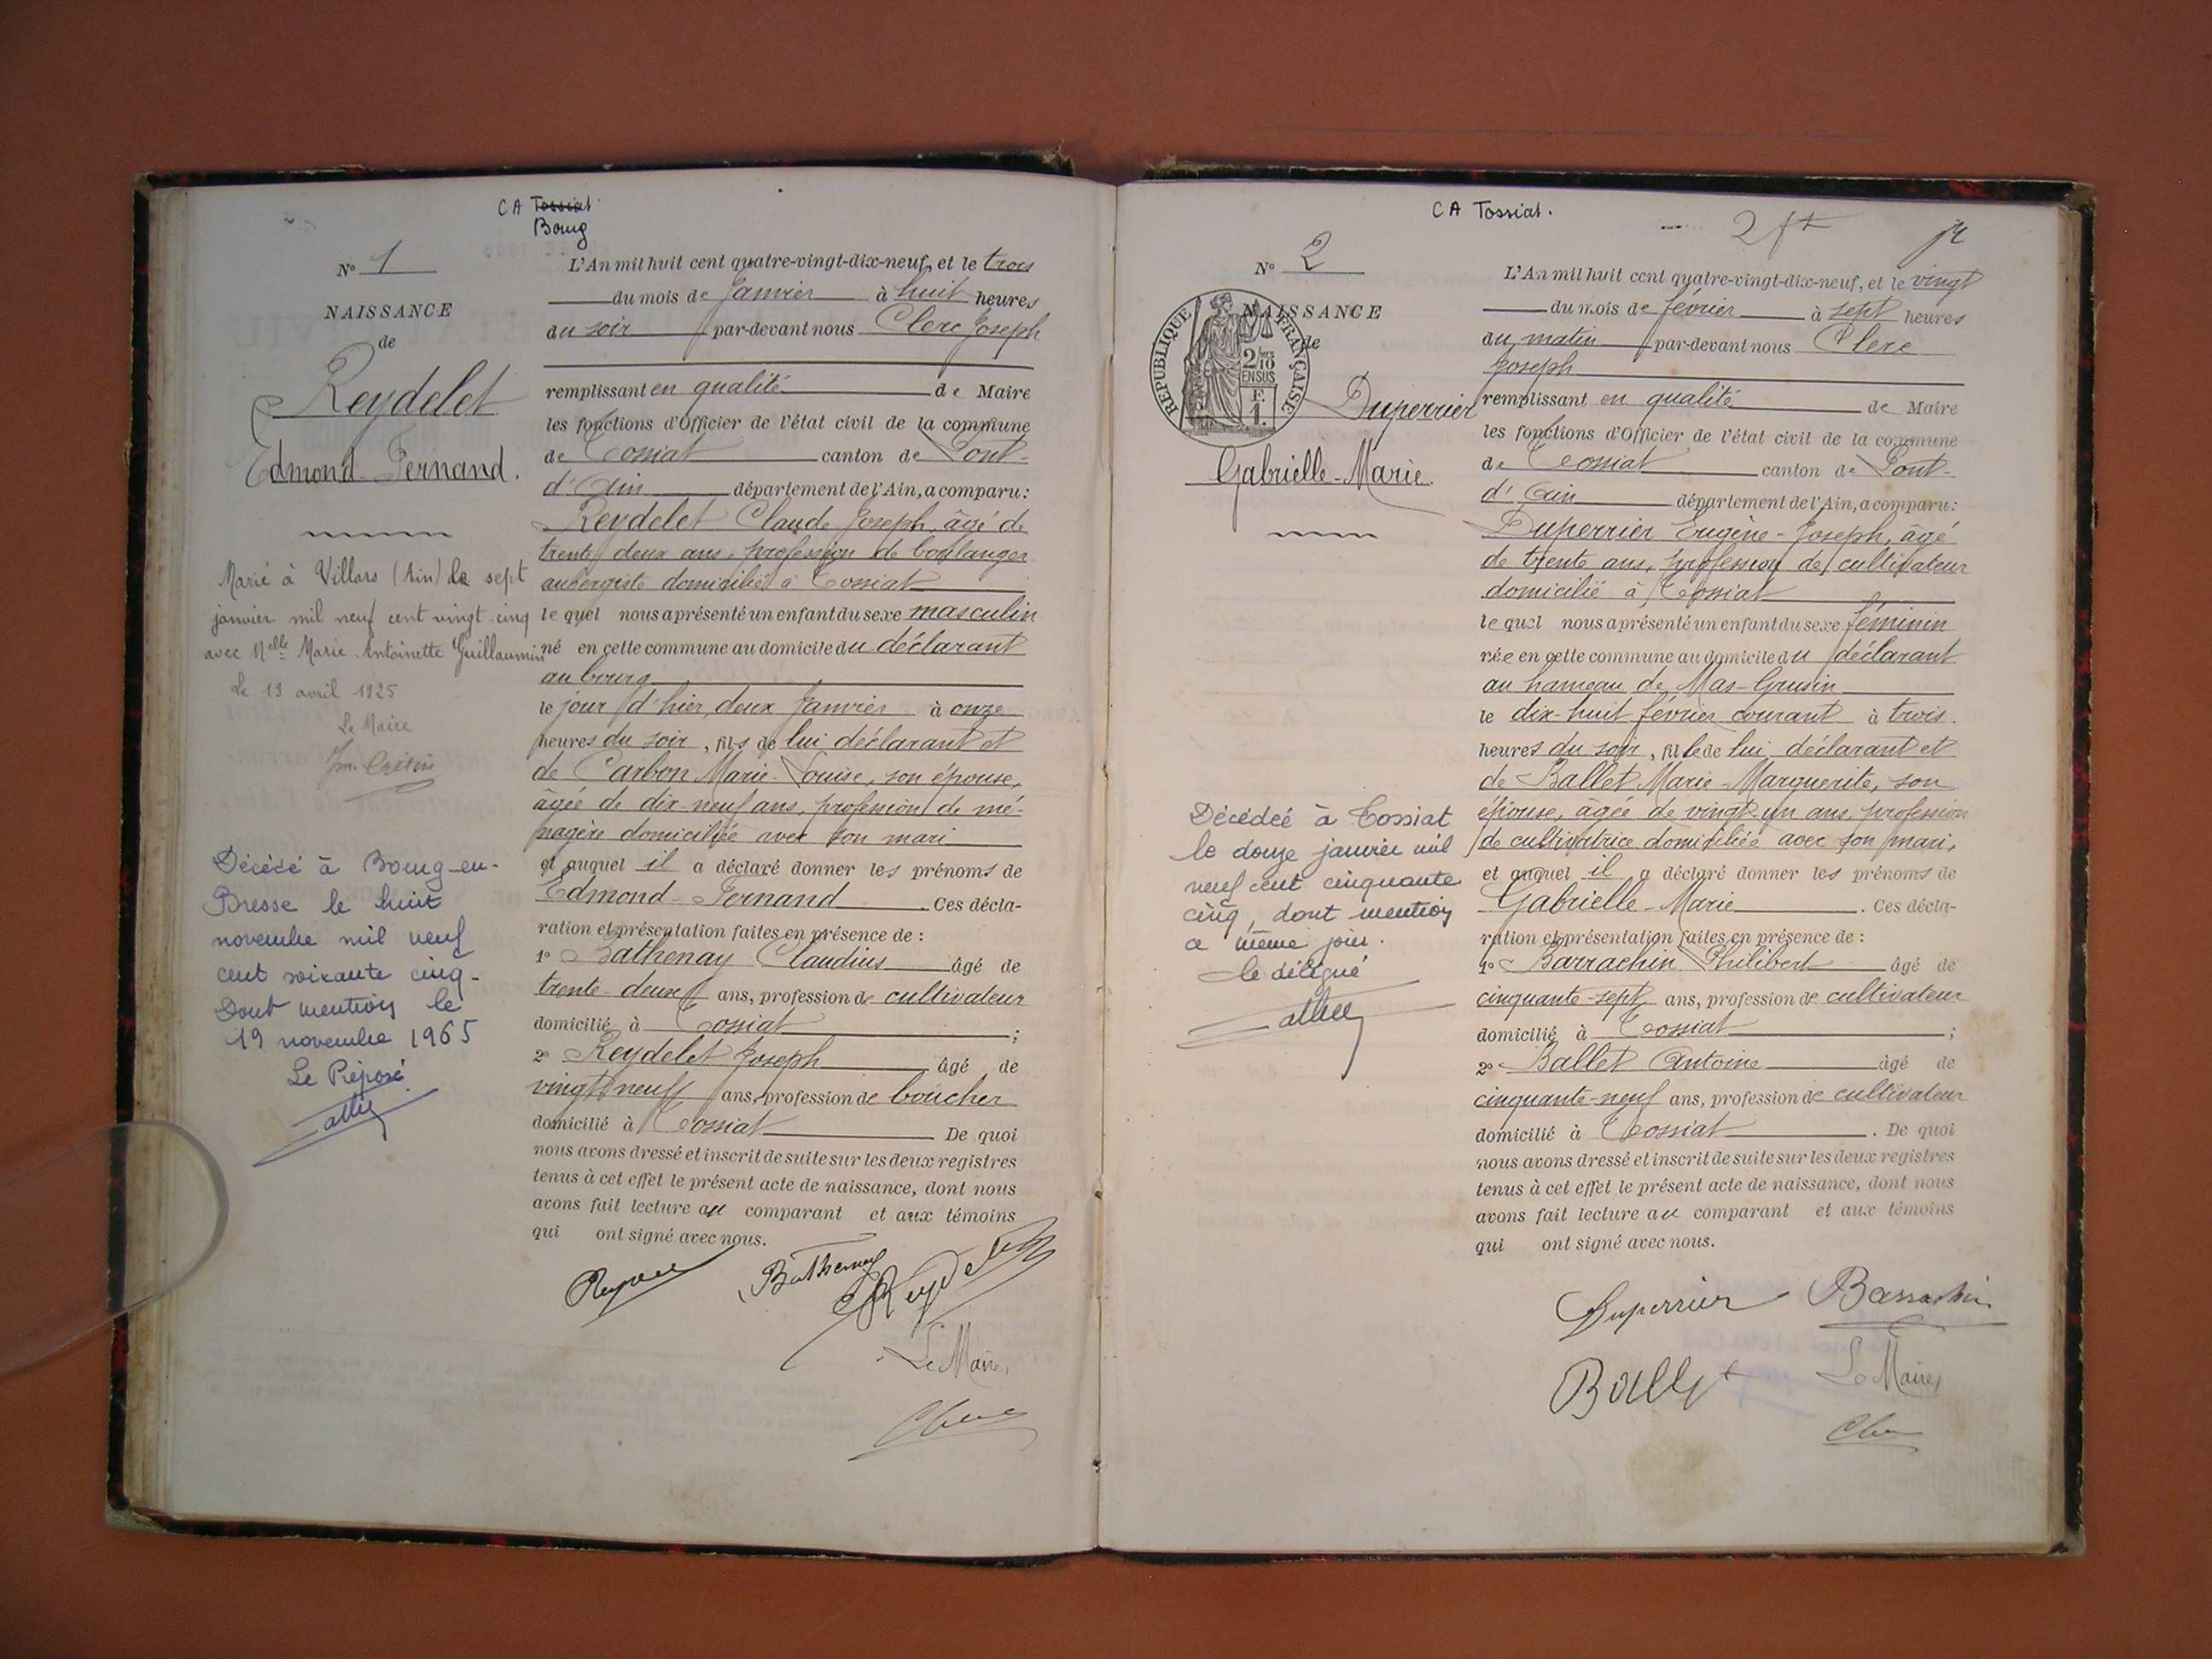 CA Tossiat
Bourg
Nº 1
NAISSANCE
de
Reydelet
Edmond-Fernand.
Marié à Villars (Ain) le sept
janvier mil neuf cent vingt-cinq
avec Melle Marie-Antoinette Guillaumin
Le 19 avril 1925
Le Maire
Décédé à Bourg-en-
Bresse le huit
novembre mil neuf
cent soixante cinq-
Dont mention le
19 novembre 1965
Le Préposé
L'An mil huit cent quatre-vingt-dix-neuf, et le trois
du mois de Janvier à huit heures
du soir par-devant nous Clerc Joseph
remplissant en qualité de Maire
les fonctions d'Officier de l'état civil de la commune
de Tossiat canton de Pont-
d'Ain département de l'Ain, a comparu:
Reydelet Claude Joseph, âgé de
trente deux ans, profession de boulanger
aubergiste domicilié à Tossiat
lequel nous a présenté un enfant du sexe masculin
né en cette commune au domicile du déclarant
au bourg
le jour d'hier, deux Janvier à onze
heures du soir, fils de lui déclarant et
de Carbon Marie-Louise, son épouse,
âgée de dix-neuf ans, profession de mé-
nagère domiciliée avec son mari
et auquel il a déclaré donner les prénoms de
Edmond-Fernand. Ces décla-
ration et présentation faites en présence de :
1º Bathenay Claudius âgé de
trente-deux ans, profession de cultivateur
domicilié à Tossiat ;
2º Reydelet Joseph âgé de
vingt neuf ans, profession de boucher
domicilié à Tossiat De quoi
nous avons dressé et inscrit de suite sur les deux registres
tenus à cet effet le présent acte de naissance, dont nous
avons fait lecture au comparant et aux témoins
qui ont signé avec nous.
Bathenay
Reydelet
Le Maire,
Clerc
CA Tossiat.
Nº 2
NAISSANCE
de
RÉPUBLIQUE FRANÇAISE
2/10
EN SUS
F.
1.
Duperrier
Gabrielle-Marie.
Décédée à Tossiat
le douze janvier mil
neuf cent cinquante
cinq, dont mention
ce même jour.
le délégué
L'An mil huit cent quatre-vingt-dix-neuf, et le vingt
du mois de février à sept heures
du matin par-devant nous Clerc
Joseph
remplissant en qualité de Maire
les fonctions d'Officier de l'état civil de la commune
de Tossiat canton de Pont-
d'Ain département de l'Ain, a comparu:
Duperrier Eugène-Joseph, âgé
de trente ans, profession de cultivateur
domicilié à Tossiat
lequel nous a présenté un enfant du sexe féminin
née en cette commune au domicile du déclarant
au hameau de Mas-Grusin
le dix-huit février courant à trois
heures du soir, fille de lui déclarant et
de Ballet Marie-Marguerite, son
épouse, âgée de vingt-un ans, profession
de cultivatrice domiciliée avec son mari,
et auquel il a déclaré donner les prénoms de
Gabrielle-Marie. Ces décla-
ration et présentation faites en présence de :
1º Barrachin Philibert âgé de
cinquante-sept ans, profession de cultivateur
domicilié à Tossiat ;
2º Ballet Antoine âgé de
cinquante-neuf ans, profession de cultivateur
domicilié à Tossiat. De quoi
nous avons dressé et inscrit de suite sur les deux registres
tenus à cet effet le présent acte de naissance, dont nous
avons fait lecture au comparant et aux témoins
qui ont signé avec nous.
Duperrier Barrachin
Ballet Le Maire,
Clerc